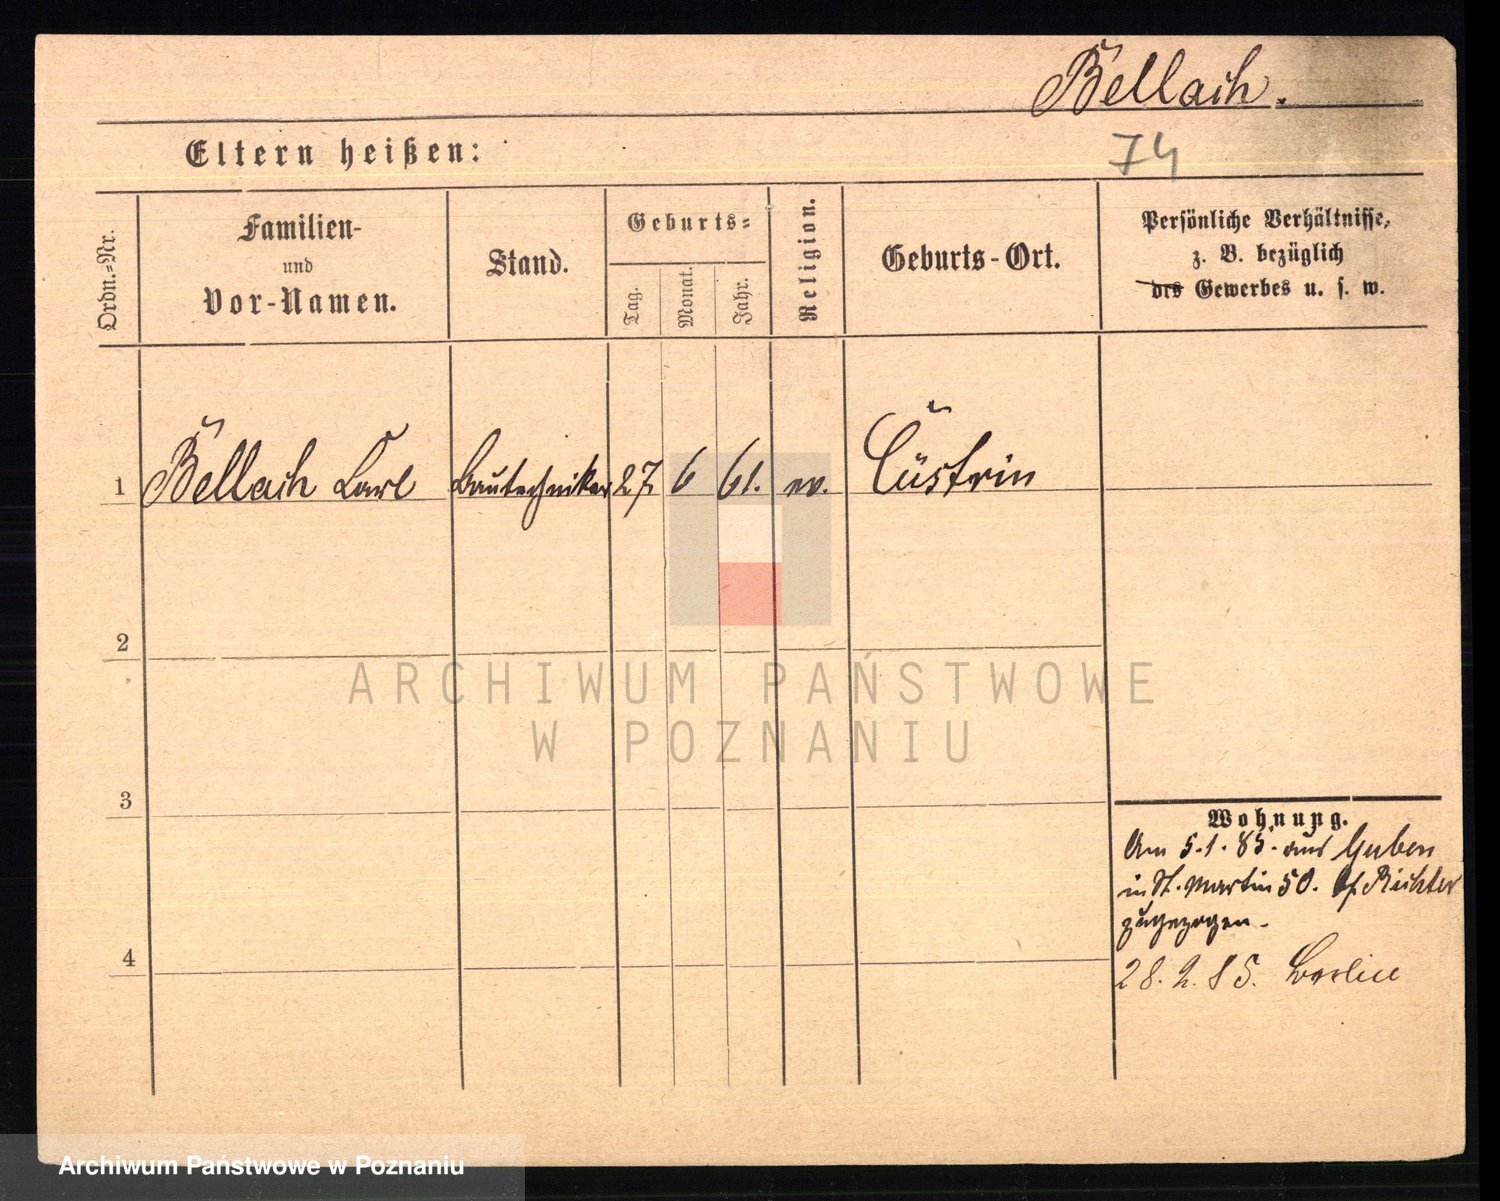 Bellach.
74
Eltern heißen:
Ordn.=Nr.
Familien-
und
Vor-Namen.
Stand.
Geburts=
Tag.
Monat.
Jahr.
Religion.
Geburts-Ort.
Persönliche Verhältnisse,
z. B. bezüglich
des Gewerbes u. s. w.
1 Bellach Carl Bautechniker 27 6 61. ev. Cüstrin
2
3
4
Wohnung.
Am 5.1.85. aus Guben
in St. Martin 50. Richter
zugezogen.
28.2.85. Berlin
ARCHIWUM PAŃSTWOWE
W POZNANIU
Archiwum Państwowe w Poznaniu